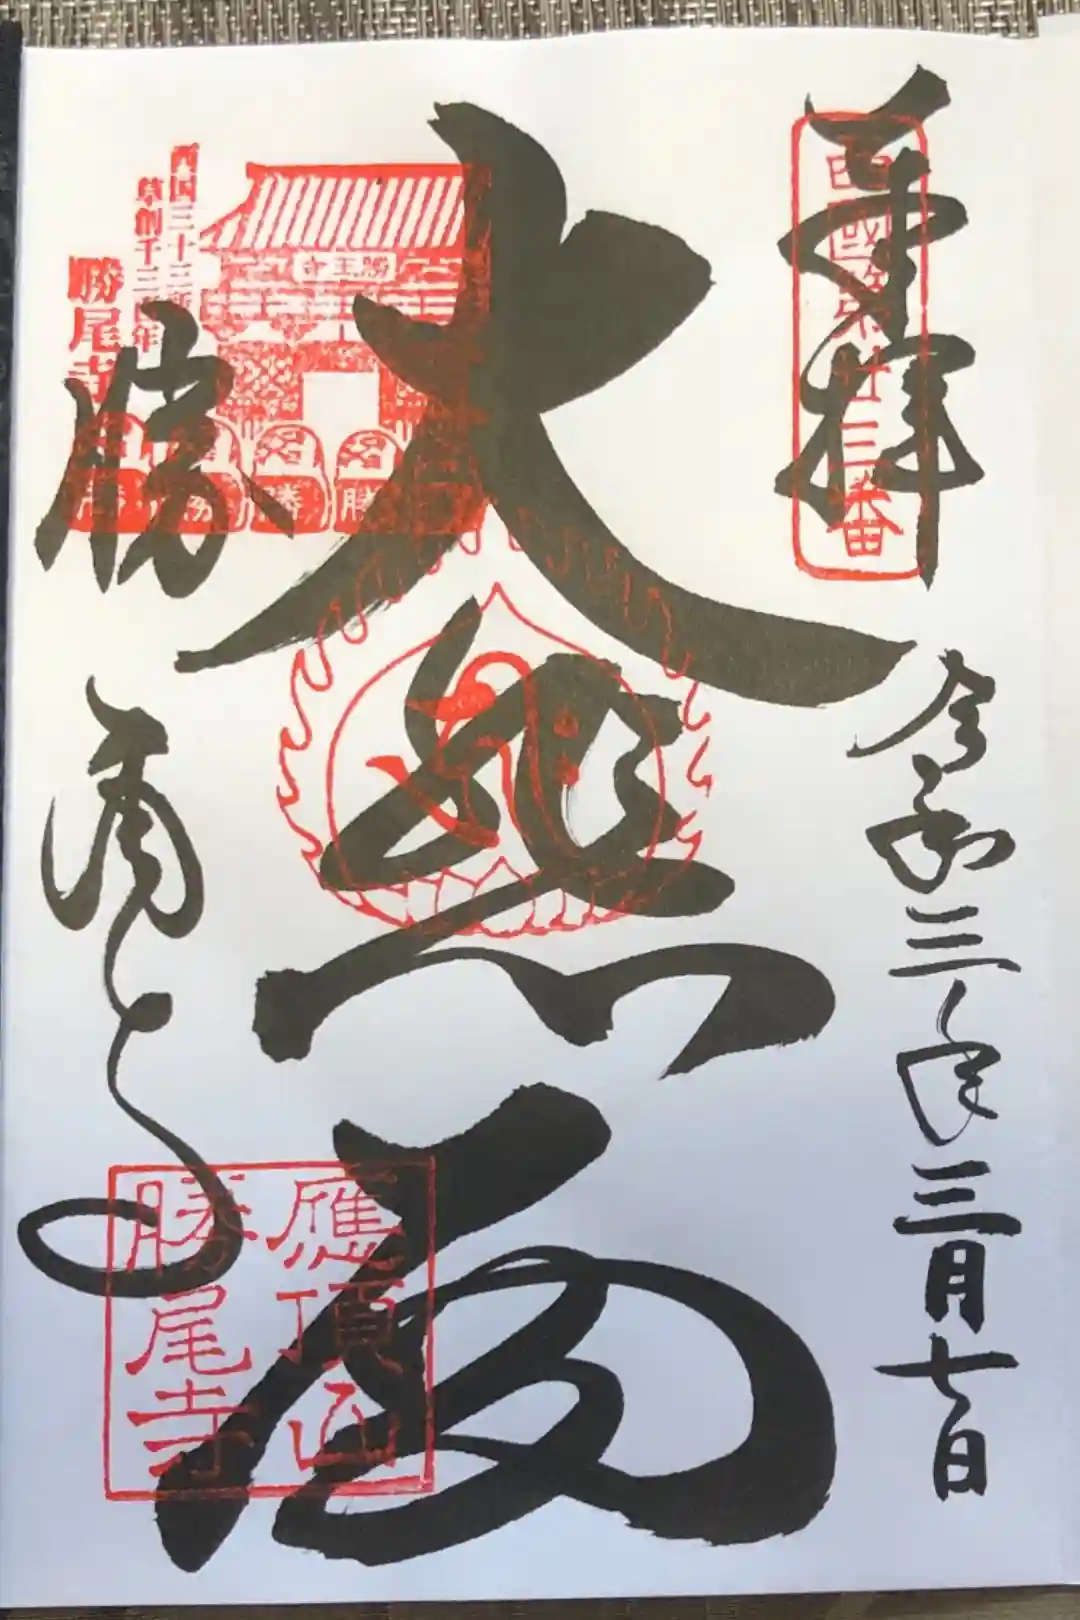 奉拝
西國第廿三番
令和三年三月七日
大悲殿
西国三十三所
草創千三百年
勝尾寺
勝王寺
勝
勝
勝
勝
勝尾寺
應頂山
勝尾寺